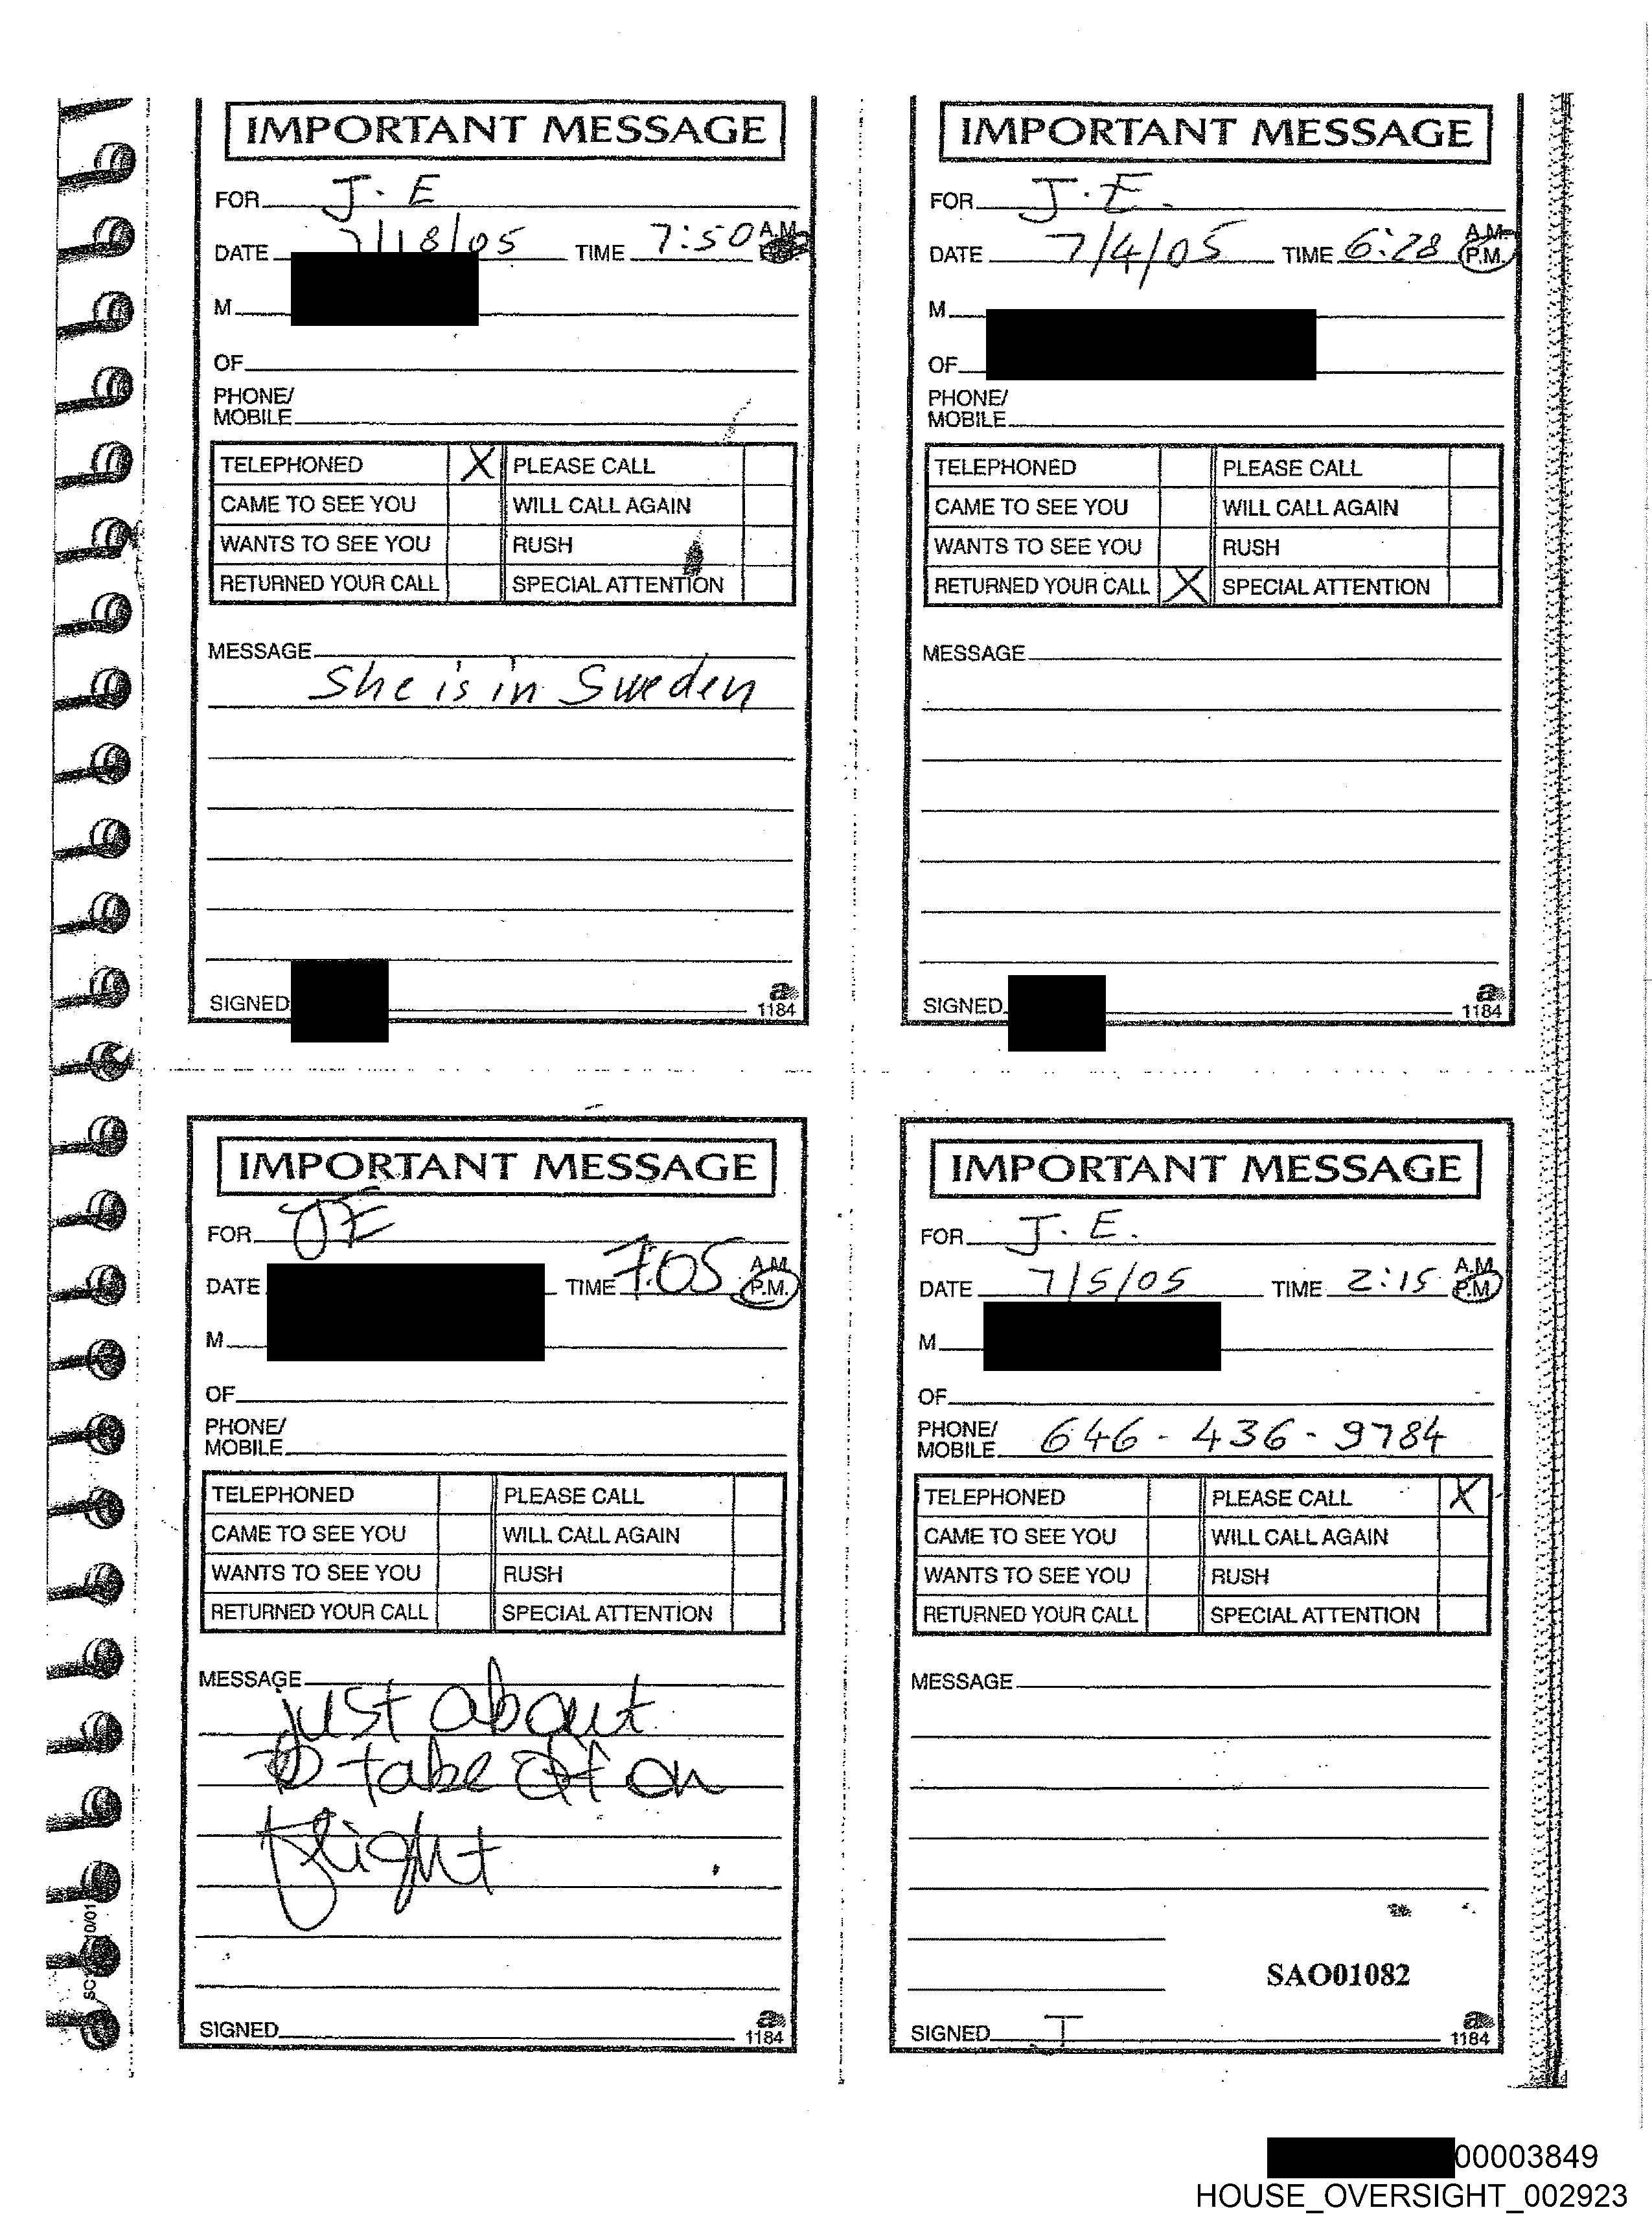 IMPORTANT MESSAGE
FOR J. E
DATE 7/18/05 TIME 7:50 A.M.
M
OF
PHONE/
MOBILE
TELEPHONED X PLEASE CALL
CAME TO SEE YOU WILL CALL AGAIN
WANTS TO SEE YOU RUSH
RETURNED YOUR CALL SPECIAL ATTENTION
MESSAGE
She is in Sweden
SIGNED
a
1184
IMPORTANT MESSAGE
FOR J. E.
DATE 7/4/05 TIME 6:28 A.M.
P.M.
M
OF
PHONE/
MOBILE
TELEPHONED PLEASE CALL
CAME TO SEE YOU WILL CALL AGAIN
WANTS TO SEE YOU RUSH
RETURNED YOUR CALL X SPECIAL ATTENTION
MESSAGE
SIGNED
a
1184
IMPORTANT MESSAGE
FOR JE
DATE TIME 7:05 A.M.
P.M.
M
OF
PHONE/
MOBILE
TELEPHONED PLEASE CALL
CAME TO SEE YOU WILL CALL AGAIN
WANTS TO SEE YOU RUSH
RETURNED YOUR CALL SPECIAL ATTENTION
MESSAGE
just about
to take off on
flight
SIGNED
a
1184
IMPORTANT MESSAGE
FOR J. E.
DATE 7/5/05 TIME 2:15 A.M.
P.M.
M
OF
PHONE/
MOBILE 646-436-9784
TELEPHONED PLEASE CALL X
CAME TO SEE YOU WILL CALL AGAIN
WANTS TO SEE YOU RUSH
RETURNED YOUR CALL SPECIAL ATTENTION
MESSAGE
SAO01082
SIGNED J
a
1184
00003849
HOUSE_OVERSIGHT_002923